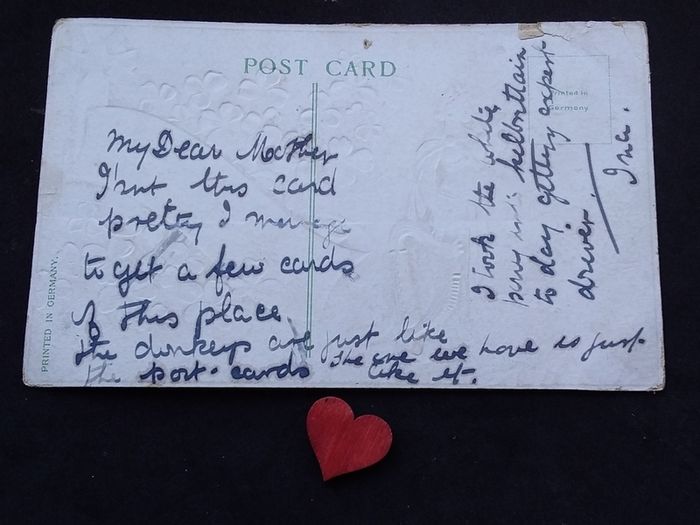 POST CARD
Printed in
Germany
PRINTED IN GERMANY.
My Dear Mother
Isnt this card
pretty I manage
to get a few cards
of this place.
The donkeys are just like
the post-cards The one we have is just
like it.
I took the white
pony into kelbrittain
to day getting expert
driver.
Ina.